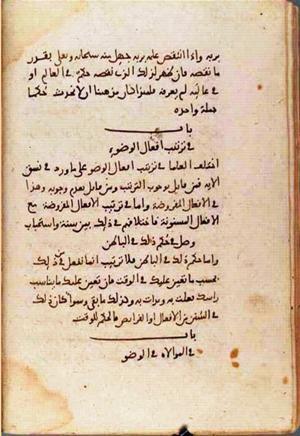 بربه واذا انتقص علمه بربه جهل منه سبحانه وتعالى بقدر
ما نقصه فان ظهر لذلك الذى نقصه حكم فى العالم او
فى عالمه لم يعرفه فلهذا كان مذهبنا ان لا نحدث حكما
جملة واحدة
باب
فى ترتيب افعال الوضوء
اختلف العلما فى ترتيب افعال الوضو على ما ورد فى نسق
الآية فمن قايل بوجوب الترتيب ومن قايل بعدم وجوبه وهذا
فى الافعال المفروضة واما فى ترتيب الافعال المفروضة مع
الافعال المسنونة فاختلافهم فى ذلك بين سنة واستحباب
وصل فى حكم ذلك فى الباطن
واما حكم ذلك فى الباطن فلا ترتيب انما تفعل من ذلك
بحسب ما تعين عليك فى الوقت فان تعين عليك ما يناسب
راسك فعلت به وبدات به وكذلك ما بقى وسوا كان ذلك
فى السنن من الافعال او الفرايض فالحكم للوقت
باب
فى الموالاة فى الوضو